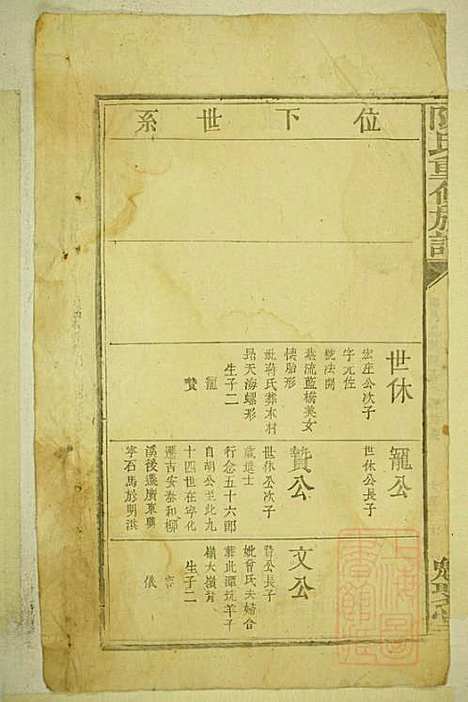 陳氏重修族譜
位下世系
世休
宏庄公次子
字元佐
號法開
葬流藍橋美女
懷胎形
妣蔣氏葬木村
昂天海螺形
生子二
寵
贊
寵公
世休公長子
贊公
世休公次子
歲進士
行念五十六郎
自胡公至此九
十四世在寧化
遷吉安泰和柳
溪後遷廣東興
寧石馬於明洪
文公
贊公長子
妣曾氏夫婦合
葬此潭坑羊子
嶺大嶺背
生子二
儀